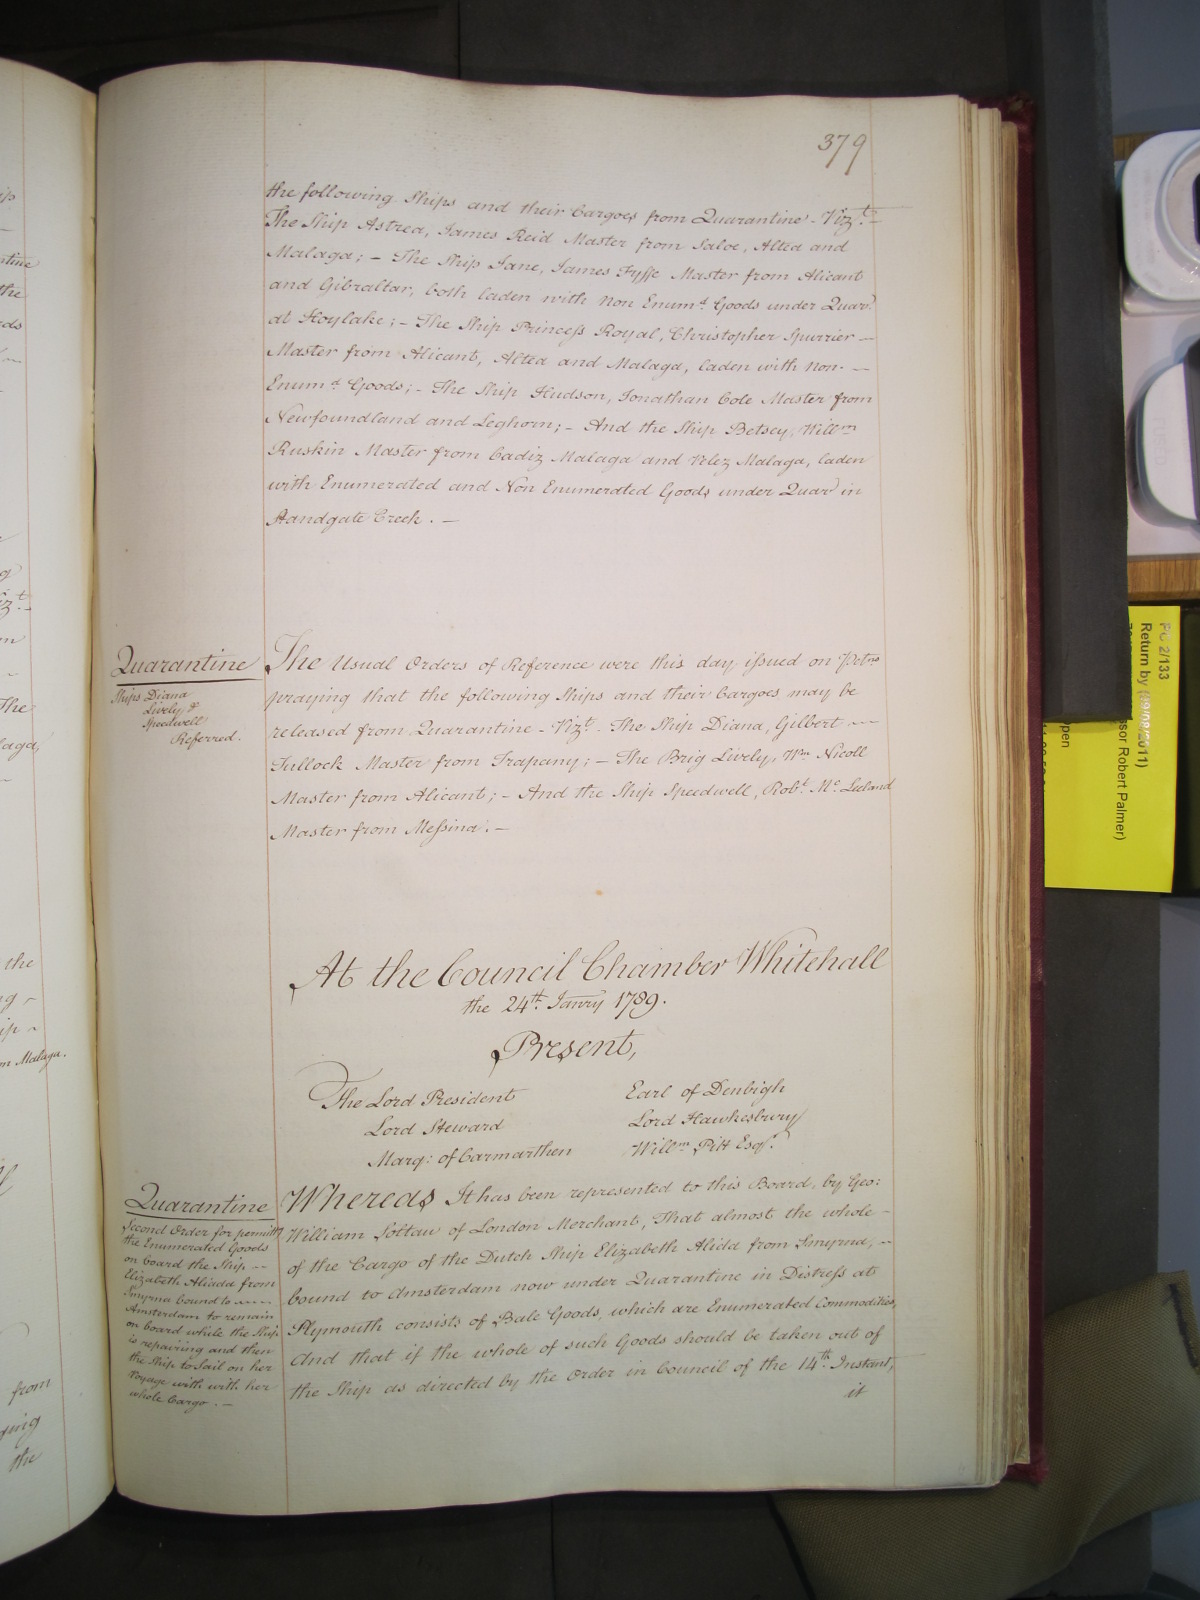 379
the following Ships and their Cargoes from Quarantine - Vizt. -
The Ship Astrea, James Reid Master from Saloe, Altea and
Malaga; - The Ship Jane, James Fyffe Master from Alicant
and Gibraltar, both laden with Non Enumd. Goods under Quar.
at Hoylake; - The Ship Princess Royal, Christopher Spurrier -
Master from Alicant, Altea and Malaga, laden with Non -
Enumd. Goods; - The Ship Hudson, Jonathan Cole Master from
Newfoundland and Leghorn; - And the Ship Betsey, Willm
Ruskin Master from Cadiz Malaga and Velez Malaga, laden
with Enumerated and Non Enumerated Goods under Quar in
Standgate Creek. -
Quarantine
Ships Diana
Lively &
Speedwell
Referred.
The Usual Orders of Reference were this day issued on Petns
praying that the following Ships and their Cargoes may be
released from Quarantine - Vizt. The Ship Diana, Gilbert -
Tullock Master from Trapany; - The Brig Lively, Wm Nicoll
Master from Alicant; - And the Ship Speedwell, Robt. Mc Leland
Master from Messina. -
At the Council Chamber Whitehall
the 24th. Janry 1789.
Present,
The Lord President
Lord Steward
Marq: of Carmarthen
Earl of Denbigh
Lord Hawkesbury
Willm Pitt Esqr.
Quarantine
Second Order for permitt
the Enumerated Goods
on board the Ship -
Elizabeth Aliada from
Smyrna bound to -
Amsterdam to remain
on board while the Ship
is repairing and then
the Ship to Sail on her
Voyage with with her
whole Cargo. -
Whereas It has been represented to this Board, by Geo:
William Soltau of London Merchant, That almost the whole -
of the Cargo of the Dutch Ship Elizabeth Alida from Smyrna, -
bound to Amsterdam now under Quarantine in Distress at
Plymouth consists of Bale Goods, which are Enumerated Commodities,
And that if the whole of such Goods should be taken out of
the Ship as directed by the Order in Council of the 14th. Instant,
it
PC 2/133
Return by (09/08/2011)
sor Robert Palmer)
pen
the
Malaga.
from
the